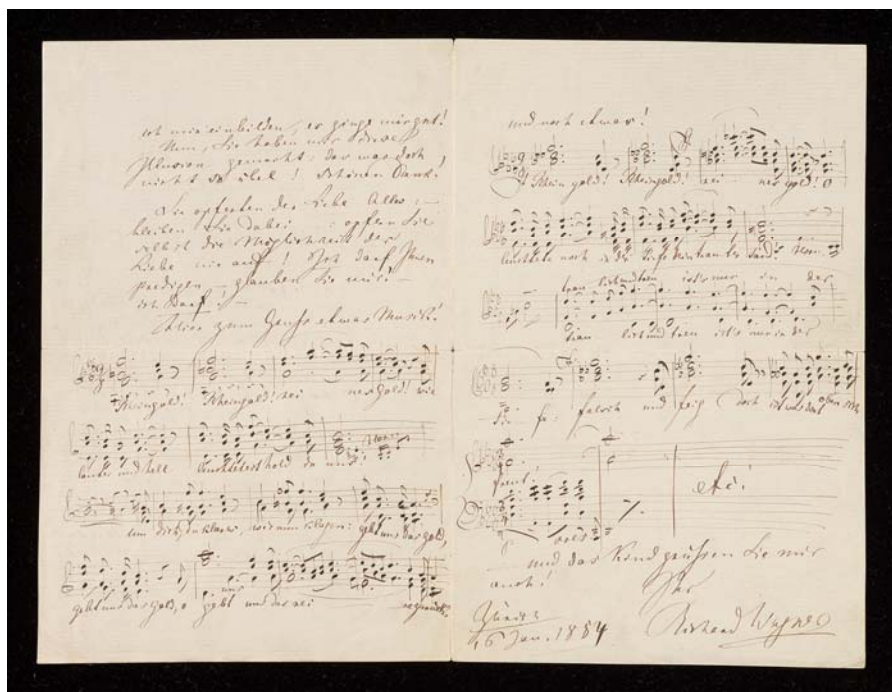 ich mir einbilden, es ginge mir gut!
Nun, Sie haben mir diese
Illusion gemacht: das war doch
nicht so übel! Schönen Dank.
Sie opferten der Liebe Alles: —
bleiben Sie dabei: opfern Sie
selbst die Möglichkeit der
Liebe nie auf! Ich darf Ihnen
predigen — glauben Sie mir! —
ich darf. —
Hier zum etwas Musik!
Rheingold! Rheingold! rei nes Gold! wie
lauter und hell leuchtetest hold du uns!
um dich, du klares, wir nun klagen: gebt uns das Gold,
gebt uns das Gold, o gebt uns das rei zurück!
und noch etwas!
Rheingold! Rheingold! rei nes Gold! O
leuchtete noch in der Tiefe dein Tand!
traulich und treu ist's nur in der
traulich und treu ist's nur in der
Tie fe: falsch und feig doch ist was dort oben sich
freut!
etc!
— und das Kind grüssen Sie mir
auch!
Ihr
Zürich
16 Jan. 1854
Richard Wagner